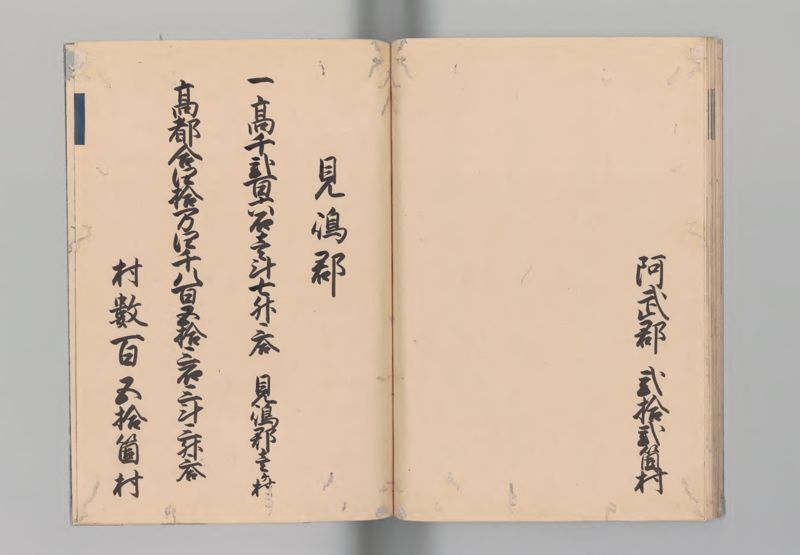 阿武郡 弐拾弐箇村
見嶋郡
一高千弐百八石壱斗七升二合 見嶋郡壱ケ村
高都合四拾万四千八百五拾三石三斗二升二合
村數百五拾箇村